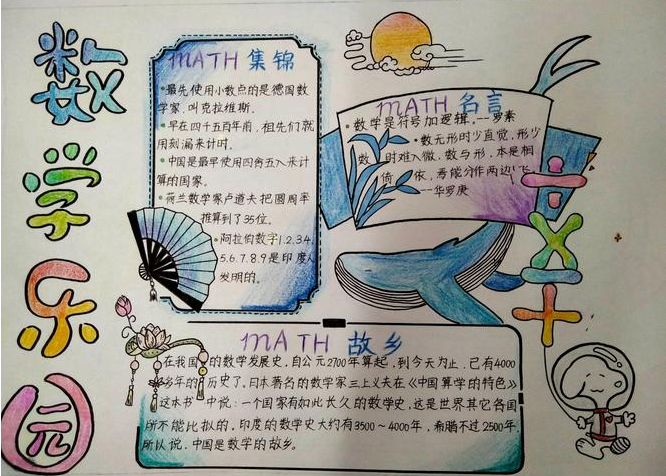 数学乐园
MATH 集锦
•最先使用小数点的是德国数
学家,叫克拉维斯.
•早在四千五百年前,祖先们就
用刻漏来计时.
•中国是最早使用四舍五入来计
算的国家.
•荷兰数学家卢道夫把圆周率
推算到了35位.
•阿拉伯数字1.2.3.4.
5.6.7.8.9是印度人
发明的.
MATH 名言
•数学是符号加逻辑.--罗素
•数无形时少直觉,形少
数时难入微,数与形,本是相
倚依,焉能分作两边飞
--华罗庚
MATH 故乡
在我国的数学发展史,自公元2700年算起,到今天为止,已有4000
多年的历史了,日本著名的数学家三上义夫在《中国算学的特色》
这本书中说:一个国家有如此长久的数学史,这是世界其它各国
所不能比拟的,印度的数学史大约有3500~4000年,希腊不过2500年.
所以说,中国是数学的故乡。